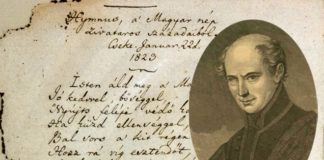 Hymnus, a' Magyar nép
zivataros századaiból.
Cseke. Januar. 22d.
1823
Isten áld meg a' Ma
Jó kedvvel, bőséggel,
Nyujts feléje védő
Ha küzd ellenséggel;
Bal sors a' kit régen
Hozz rá víg esztendőt,